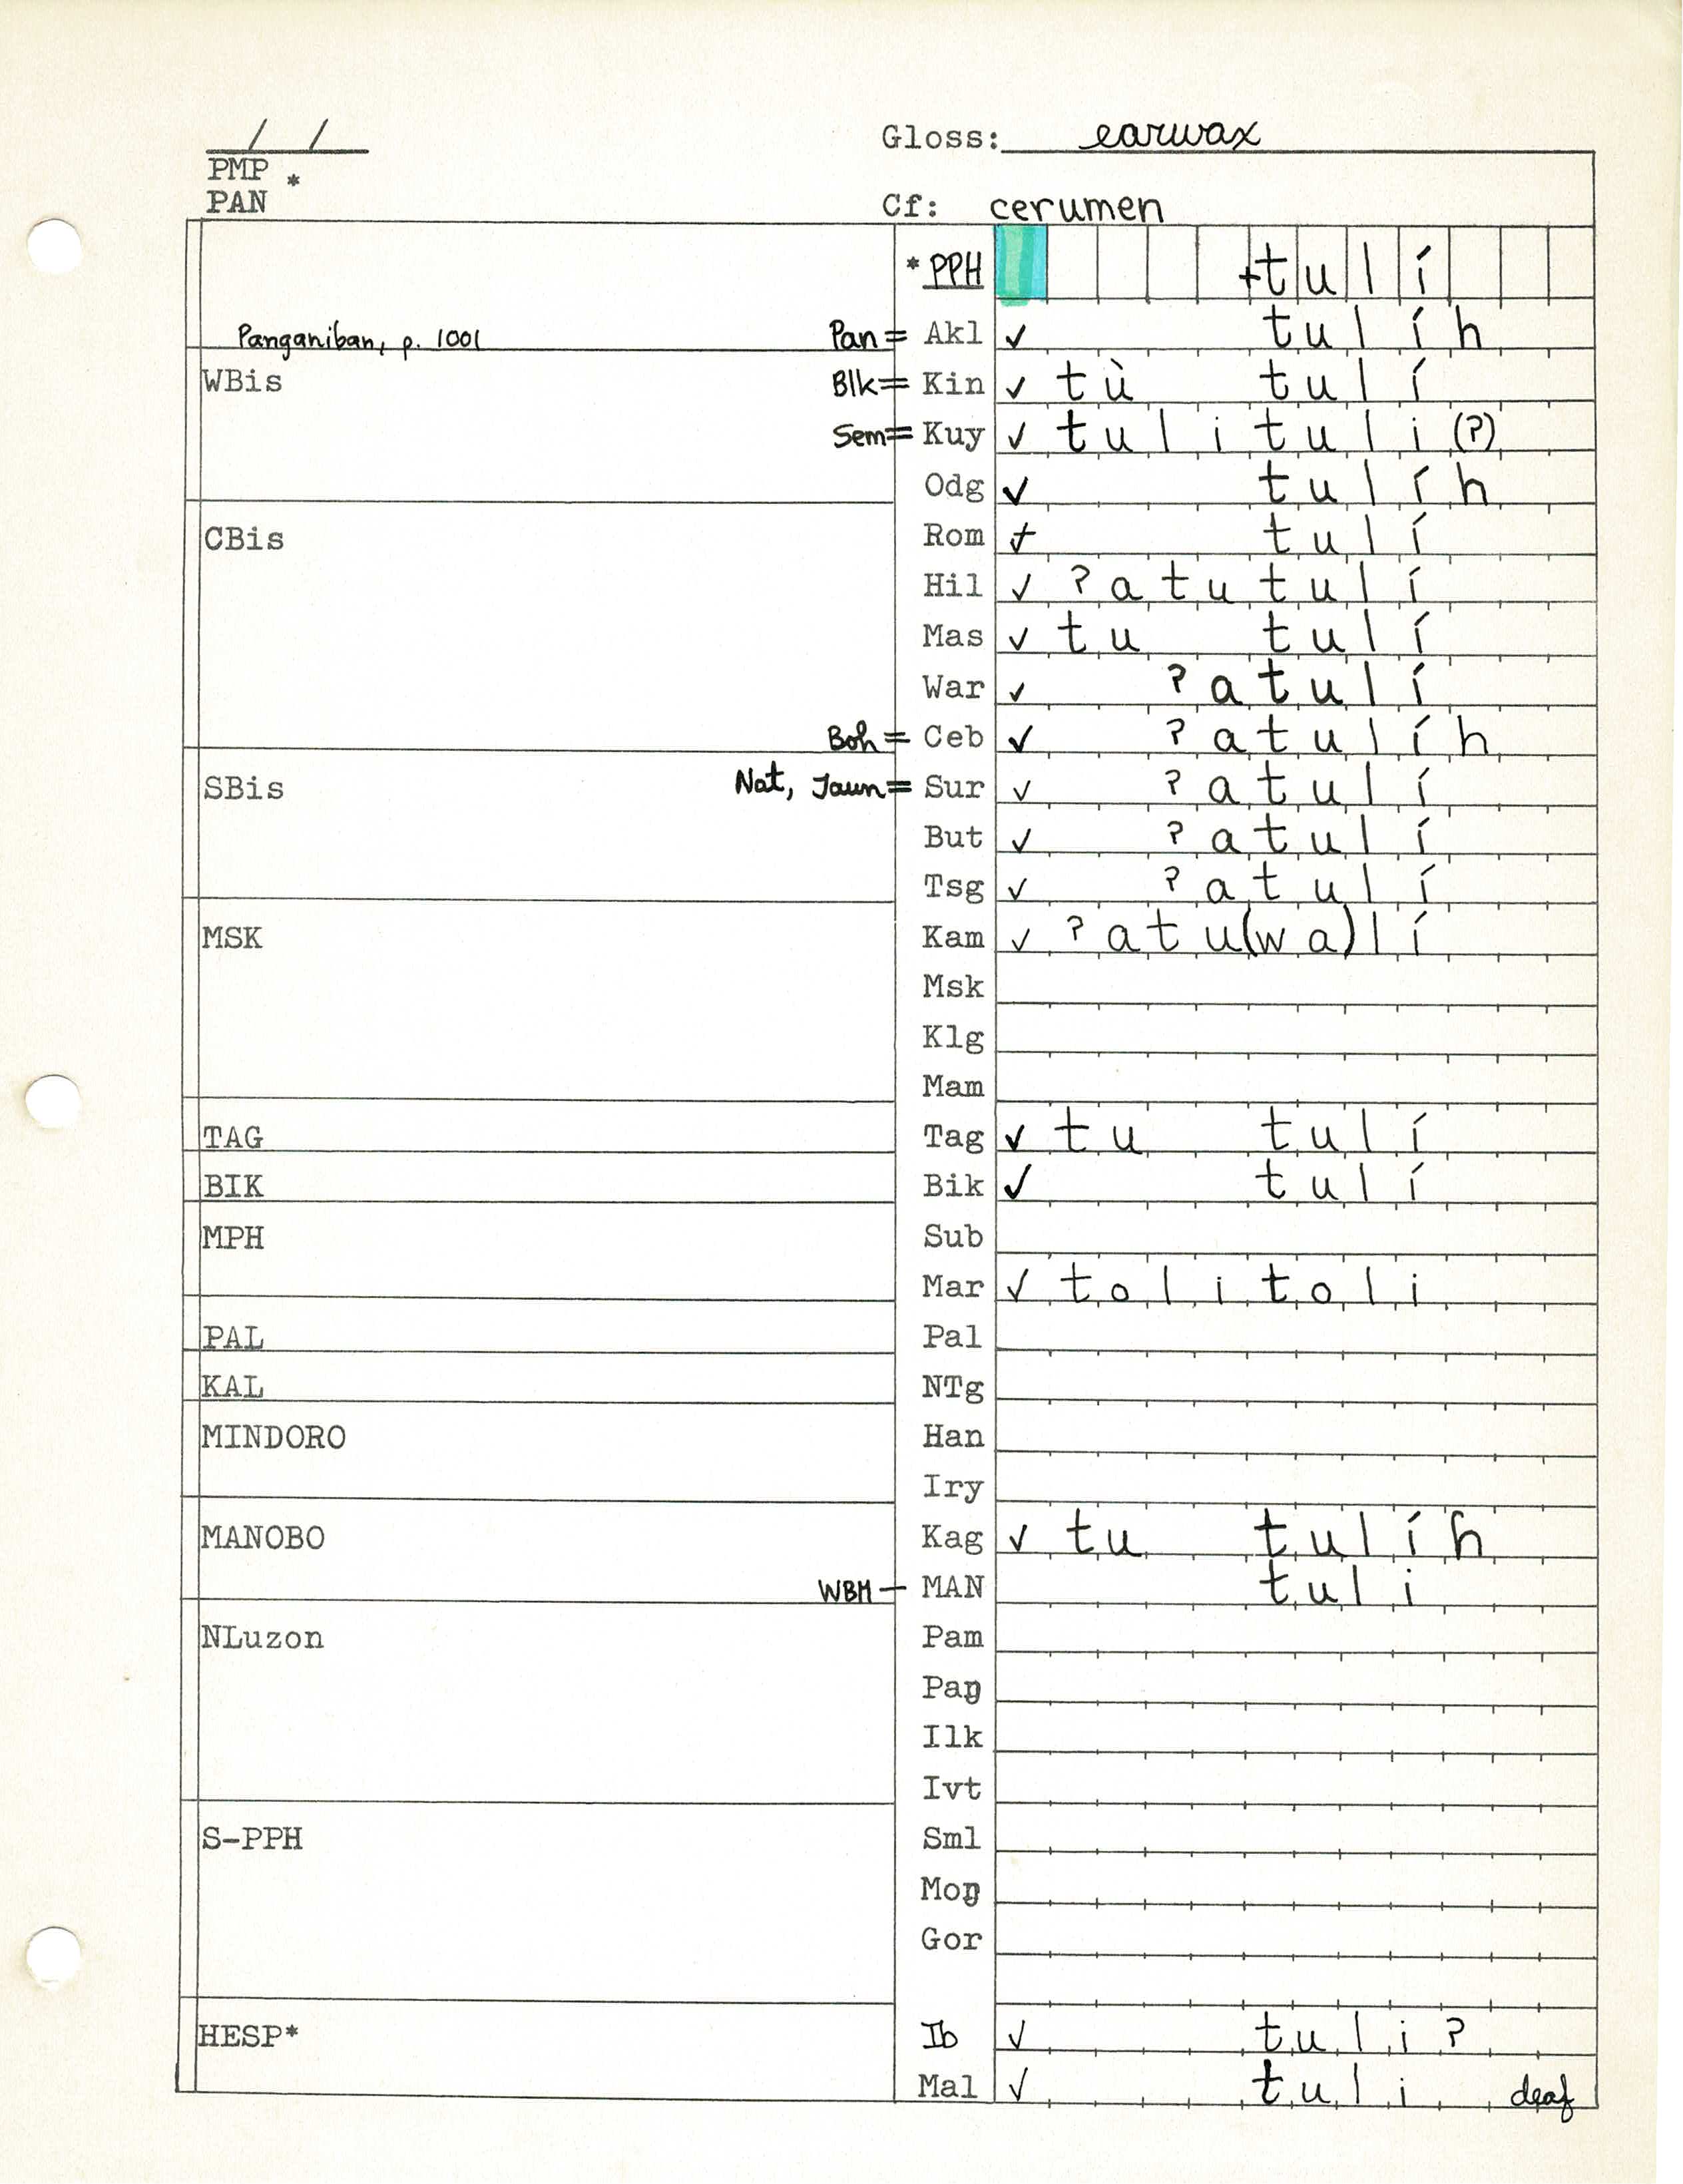 / /
Gloss: earwax
PMP *
PAN
Cf: cerumen
* PPH +tulí
Panganiban, p. 1001 Pan = Akl ✓ tulíh
WBis Blk = Kin ✓ tù tulí
Sem = Kuy ✓ tulituli (?)
Odg ✓ tulíh
CBis Rom + tulí
Hil ✓ ?atutulí
Mas ✓ tu tulí
War ✓ ?atulí
Boh = Ceb ✓ ?atulíh
SBis Nat, Jaun = Sur ✓ ?atulí
But ✓ ?atulí
Tsg ✓ ?atulí
MSK Kam ✓ ?atu(wa)lí
Msk
Klg
Mam
TAG Tag ✓ tu tulí
BIK Bik ✓ tulí
MPH Sub
Mar ✓ tolitoli
PAL Pal
KAL NTg
MINDORO Han
Iry
MANOBO Kag ✓ tu tulíh
WBM — MAN tuli
NLuzon Pam
Paŋ
Ilk
Ivt
S-PPH Sml
Moŋ
Gor
HESP* Ib ✓ tuli?
Mal ✓ tuli deaf